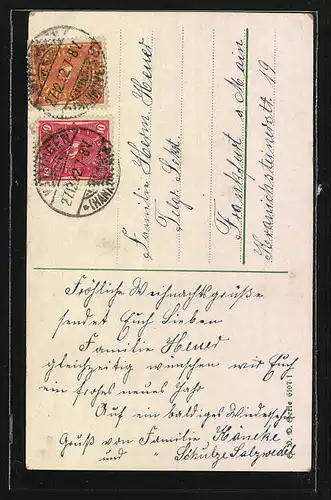 Familie Herm. Heuer
Telgr. Sekt.
Frankfurt a Main
19
Fröhliche Weihnachtsgrüße
sendet Euch Lieben
Familie Heuer
gleichzeitig wünschen wir Euch
ein frohes neues Jahr
Auf ein baldiges Wiedersehn
Gruß von Familie Häneke
und " Schulze Salzwedel
Serie 6107
27.12.22.7-8V
(HANN)